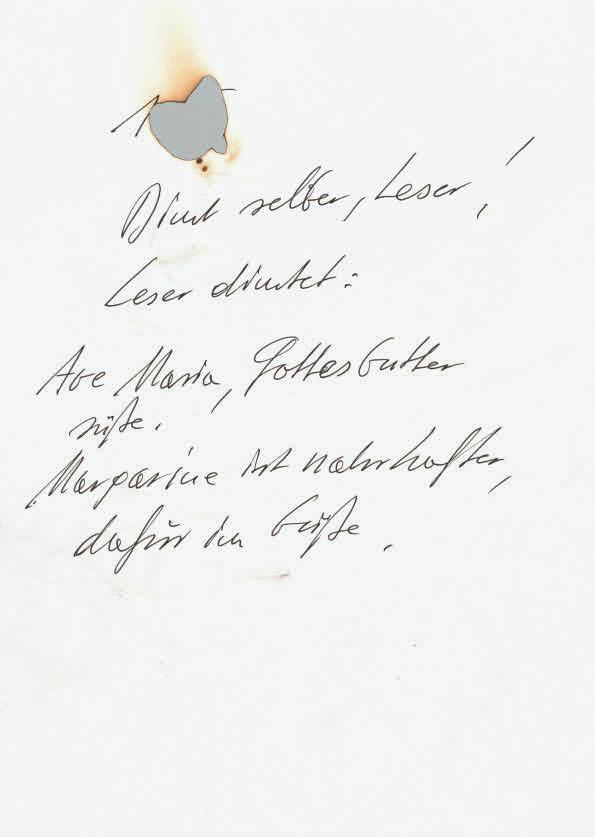 Dint selber, Leser!
Leser dintet:
Ave Maria, Gottesbutter
süße.
Margarine ist nahrhafter,
dafür büße.